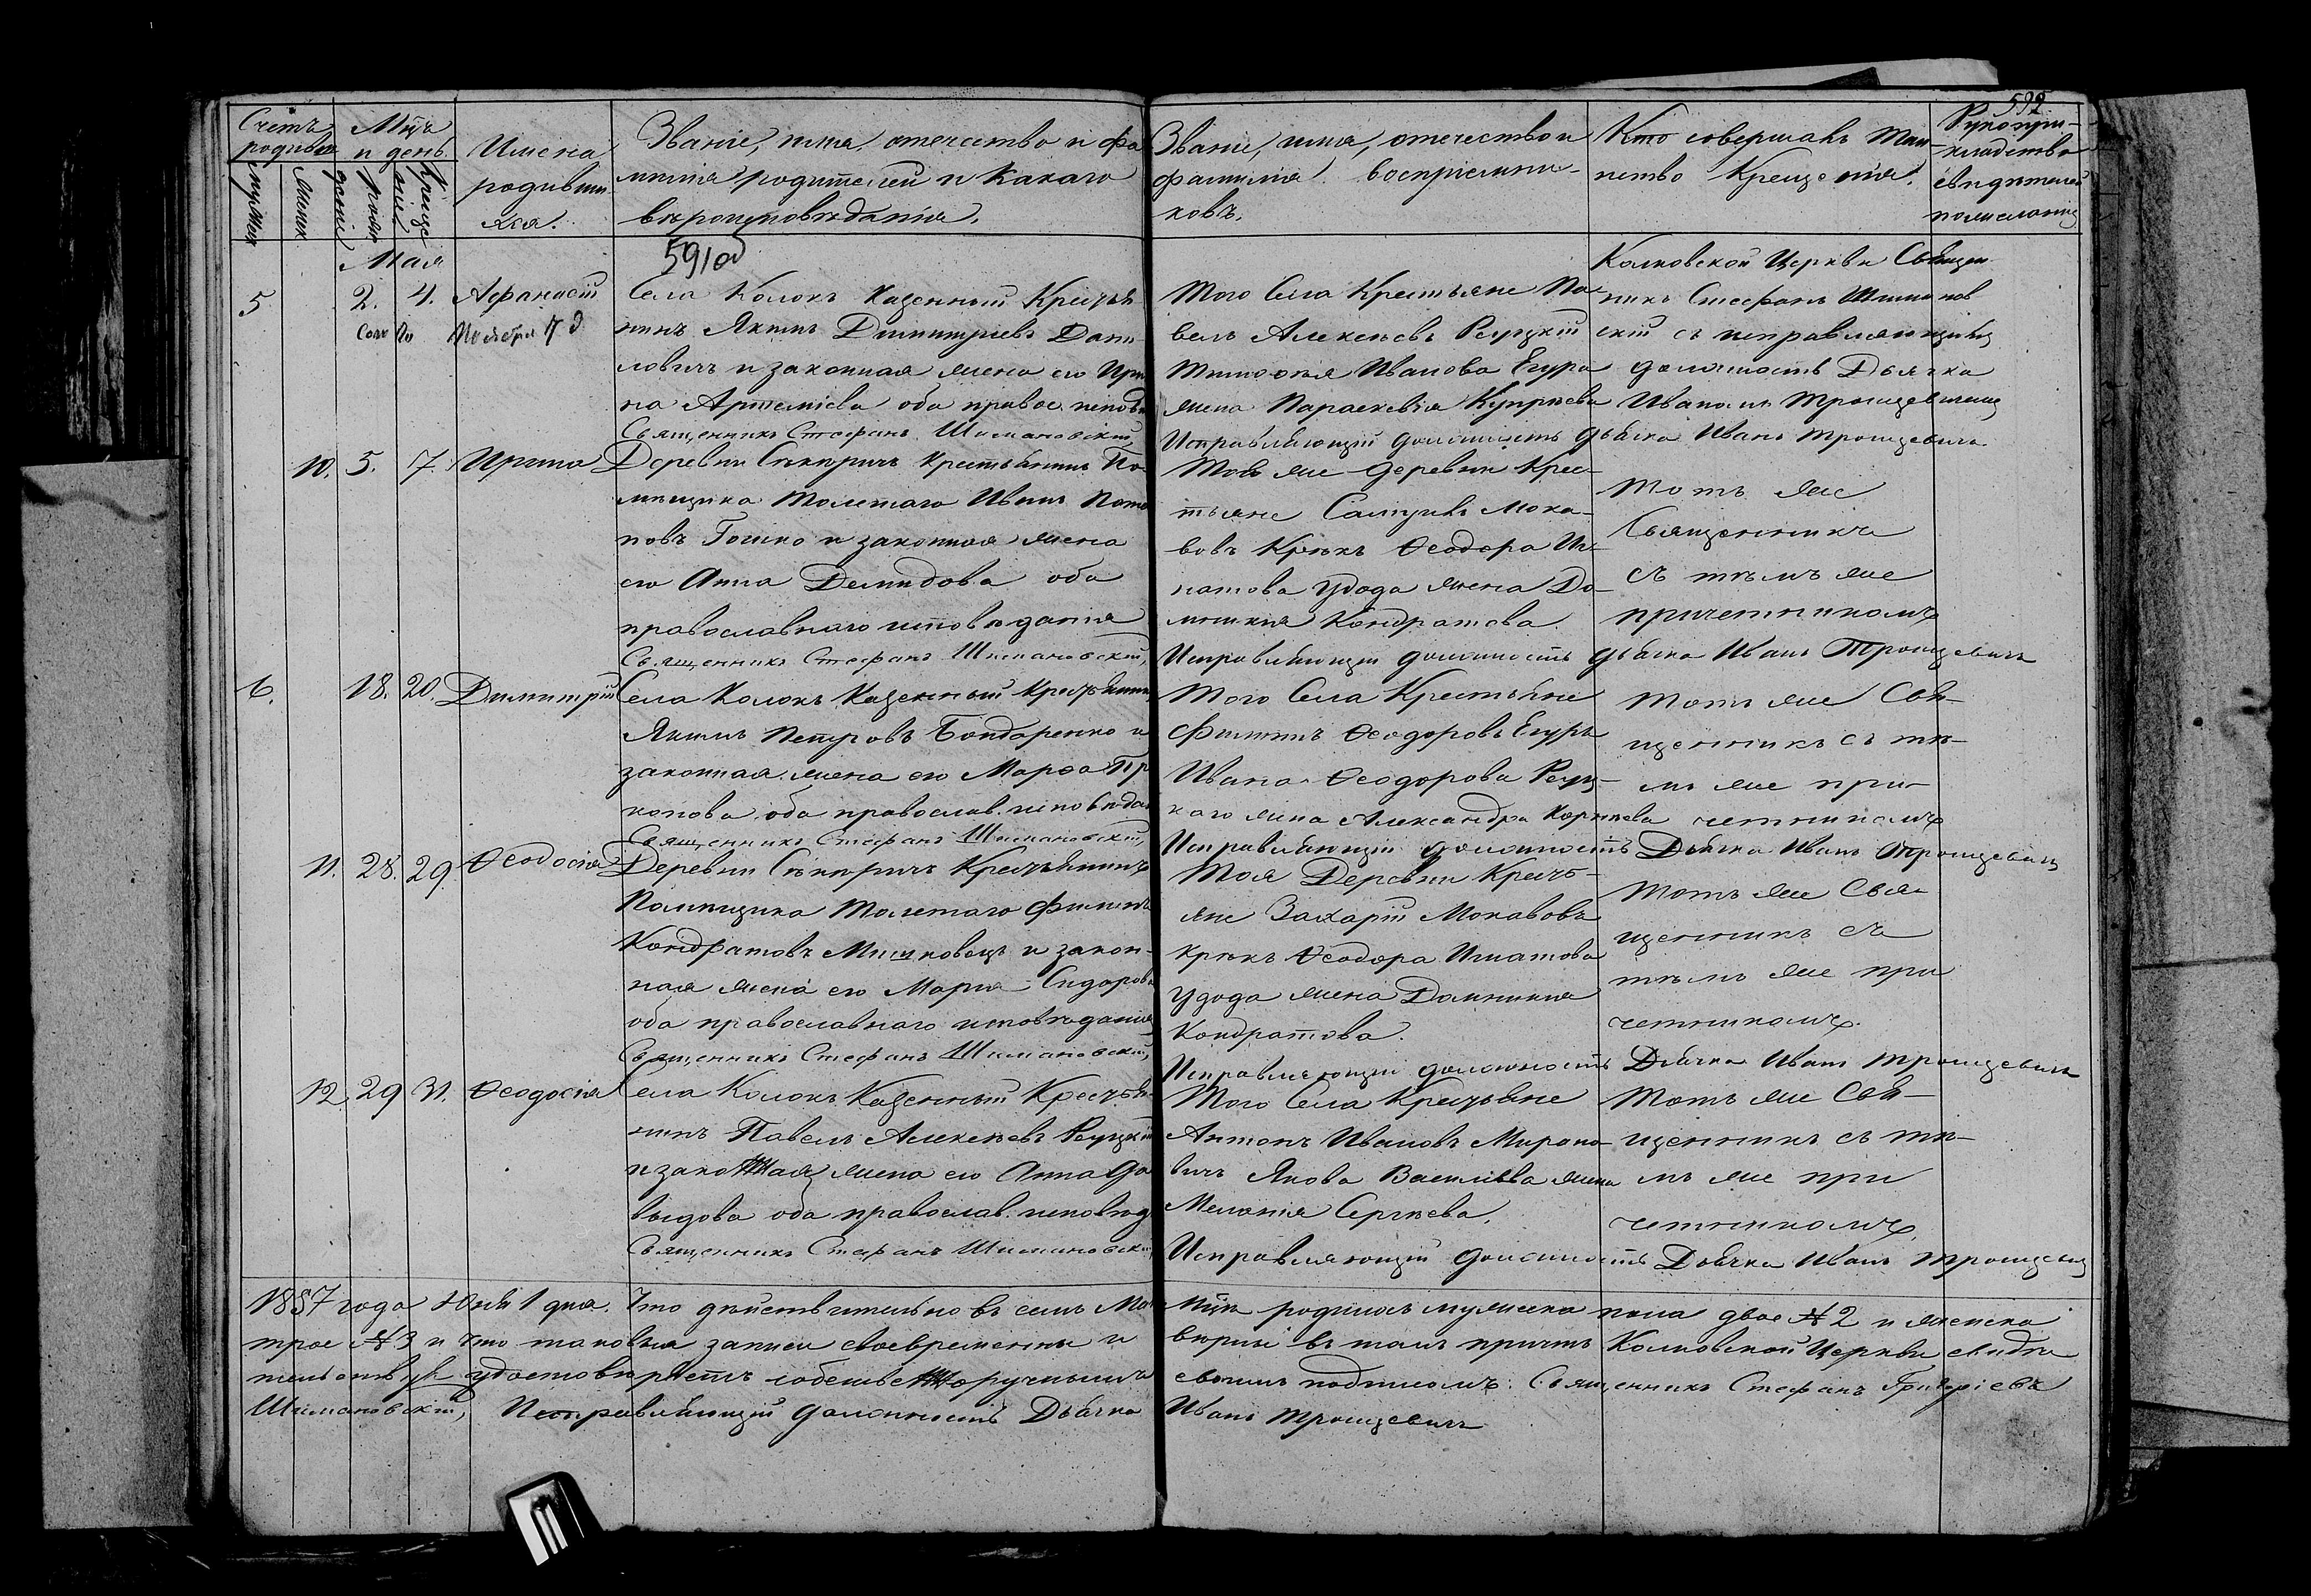 592
Счетъ родивш
мужеск
женск
Мцъ и день
рожденія
крещенія
Имена
родивши
хся.
Званіе, имя, отечество и фа
милія родителей и Какаго
вѣроисповѣданія.
Званіе, имя, отечество и
фамилія воспріемни-
ковъ.
Кто совершалъ Таи-
нство Крещенія.
Рукопри-
кладство
свидѣтелей
591об
Мая
5 2. 4. Афанасій
Ноября
Села Колокъ Казенный Крестья
нинъ Якимъ Димитріевъ Дани
ловичъ и законная жена его Ири
на Артеміева оба правос исповѣ
Священникъ Стефанъ Шимановскій,
Того Села Крестьяне Па
велъ Алексѣевъ Реуцкій
Тимофѣя Иванова Егура
жена Параскевія Купріева
Исправляющій должность дьячка Иванъ Троицевичъ
Колковской Церкви Священ
никъ Стефанъ Шиманов
скій съ исправляющимъ
должность Дьячка
Иваномъ Троицевичемъ
10. 5. 7. Ирина
Деревни Секиричъ крестьянинъ По-
мѣщика Толстаго Иванъ Пота
повъ и законная жена
его Анна Демидова оба
православнаго исповѣданія
Священникъ Стефанъ Шимановскій,
Той же деревни Крес-
тьяне Самуилъ Мока-
вовъ Крюкъ Ѳеодора Иг-
натова Удода жена До-
мникія Кондратова.
Исправляющій должность дьячка Иванъ Троицевичъ
Тотъ же
Священникъ
съ тѣмъ же
причетникомъ
6. 18. 20. Димитрій
Села Колокъ Казенный крестьянинъ
Якимъ Петровъ Бондаренко и
законная жена его Марѳа Пр
копова оба православ. исповѣдан
Священникъ Стефанъ Шимановскій,
Того Села Крестьяне
Филипъ Ѳеодоровъ Егуръ
Ивана Ѳеодорова Реуц-
каго жена Александра Корнѣева
Исправляющій должность Дьячка Иванъ Троицевичъ
Тотъ же Свя-
щенникъ съ тѣ-
мъ же при-
четникомъ
11. 28. 29. Ѳеодосія
Деревни Секиричъ Крестьянинъ
Помѣщика Толстаго Филипъ
Кондратовъ Мишковецъ и закон-
ная жена его Марія Сидорова
оба православнаго исповѣданія
Священникъ Стефанъ Шимановскій,
Тоя Деревни Кресть-
яне Захарій Мокавовъ
Крюкъ Ѳеодора Игнатова
Удода жена Домникія
Кондратова.
Исправляющій должность Дьячка Иванъ Троицевичъ
Тотъ же Свя-
щенникъ съ
тѣмъ же при
четникомъ.
12. 29 31. Ѳеодосія
Села Колокъ Казенный Крестья-
нинъ Павелъ Алексѣевъ Реуцкій
и законная жена его Анна Да
выдова оба православ. исповѣд
Священникъ Стефанъ Шимановскій
Того Села Крестьяне
Антонъ Ивановъ Мироно-
вичъ Якова Василіева жена
Меланія Сергѣева.
Исправляющій должность Дьячка Иванъ Троицевичъ
Тотъ же Свя-
щенникъ съ тѣ-
мъ же при
четникомъ,
1857 года Юня 1 дня. Что дѣйствительно въ семъ Маѣ Мцѣ родилось мужеска пола двое № 2 и женска
трое № 3 и что таковыя записи своевременны и вѣрны въ томъ причтъ Колковской Церкви свидѣ
тельствуя удостовѣряетъ собственноручнымъ своимъ подписомъ: Священникъ Стефанъ Григоріевъ
Шимановскій, Исправляющій должность Дьячка Иванъ Троицевичъ